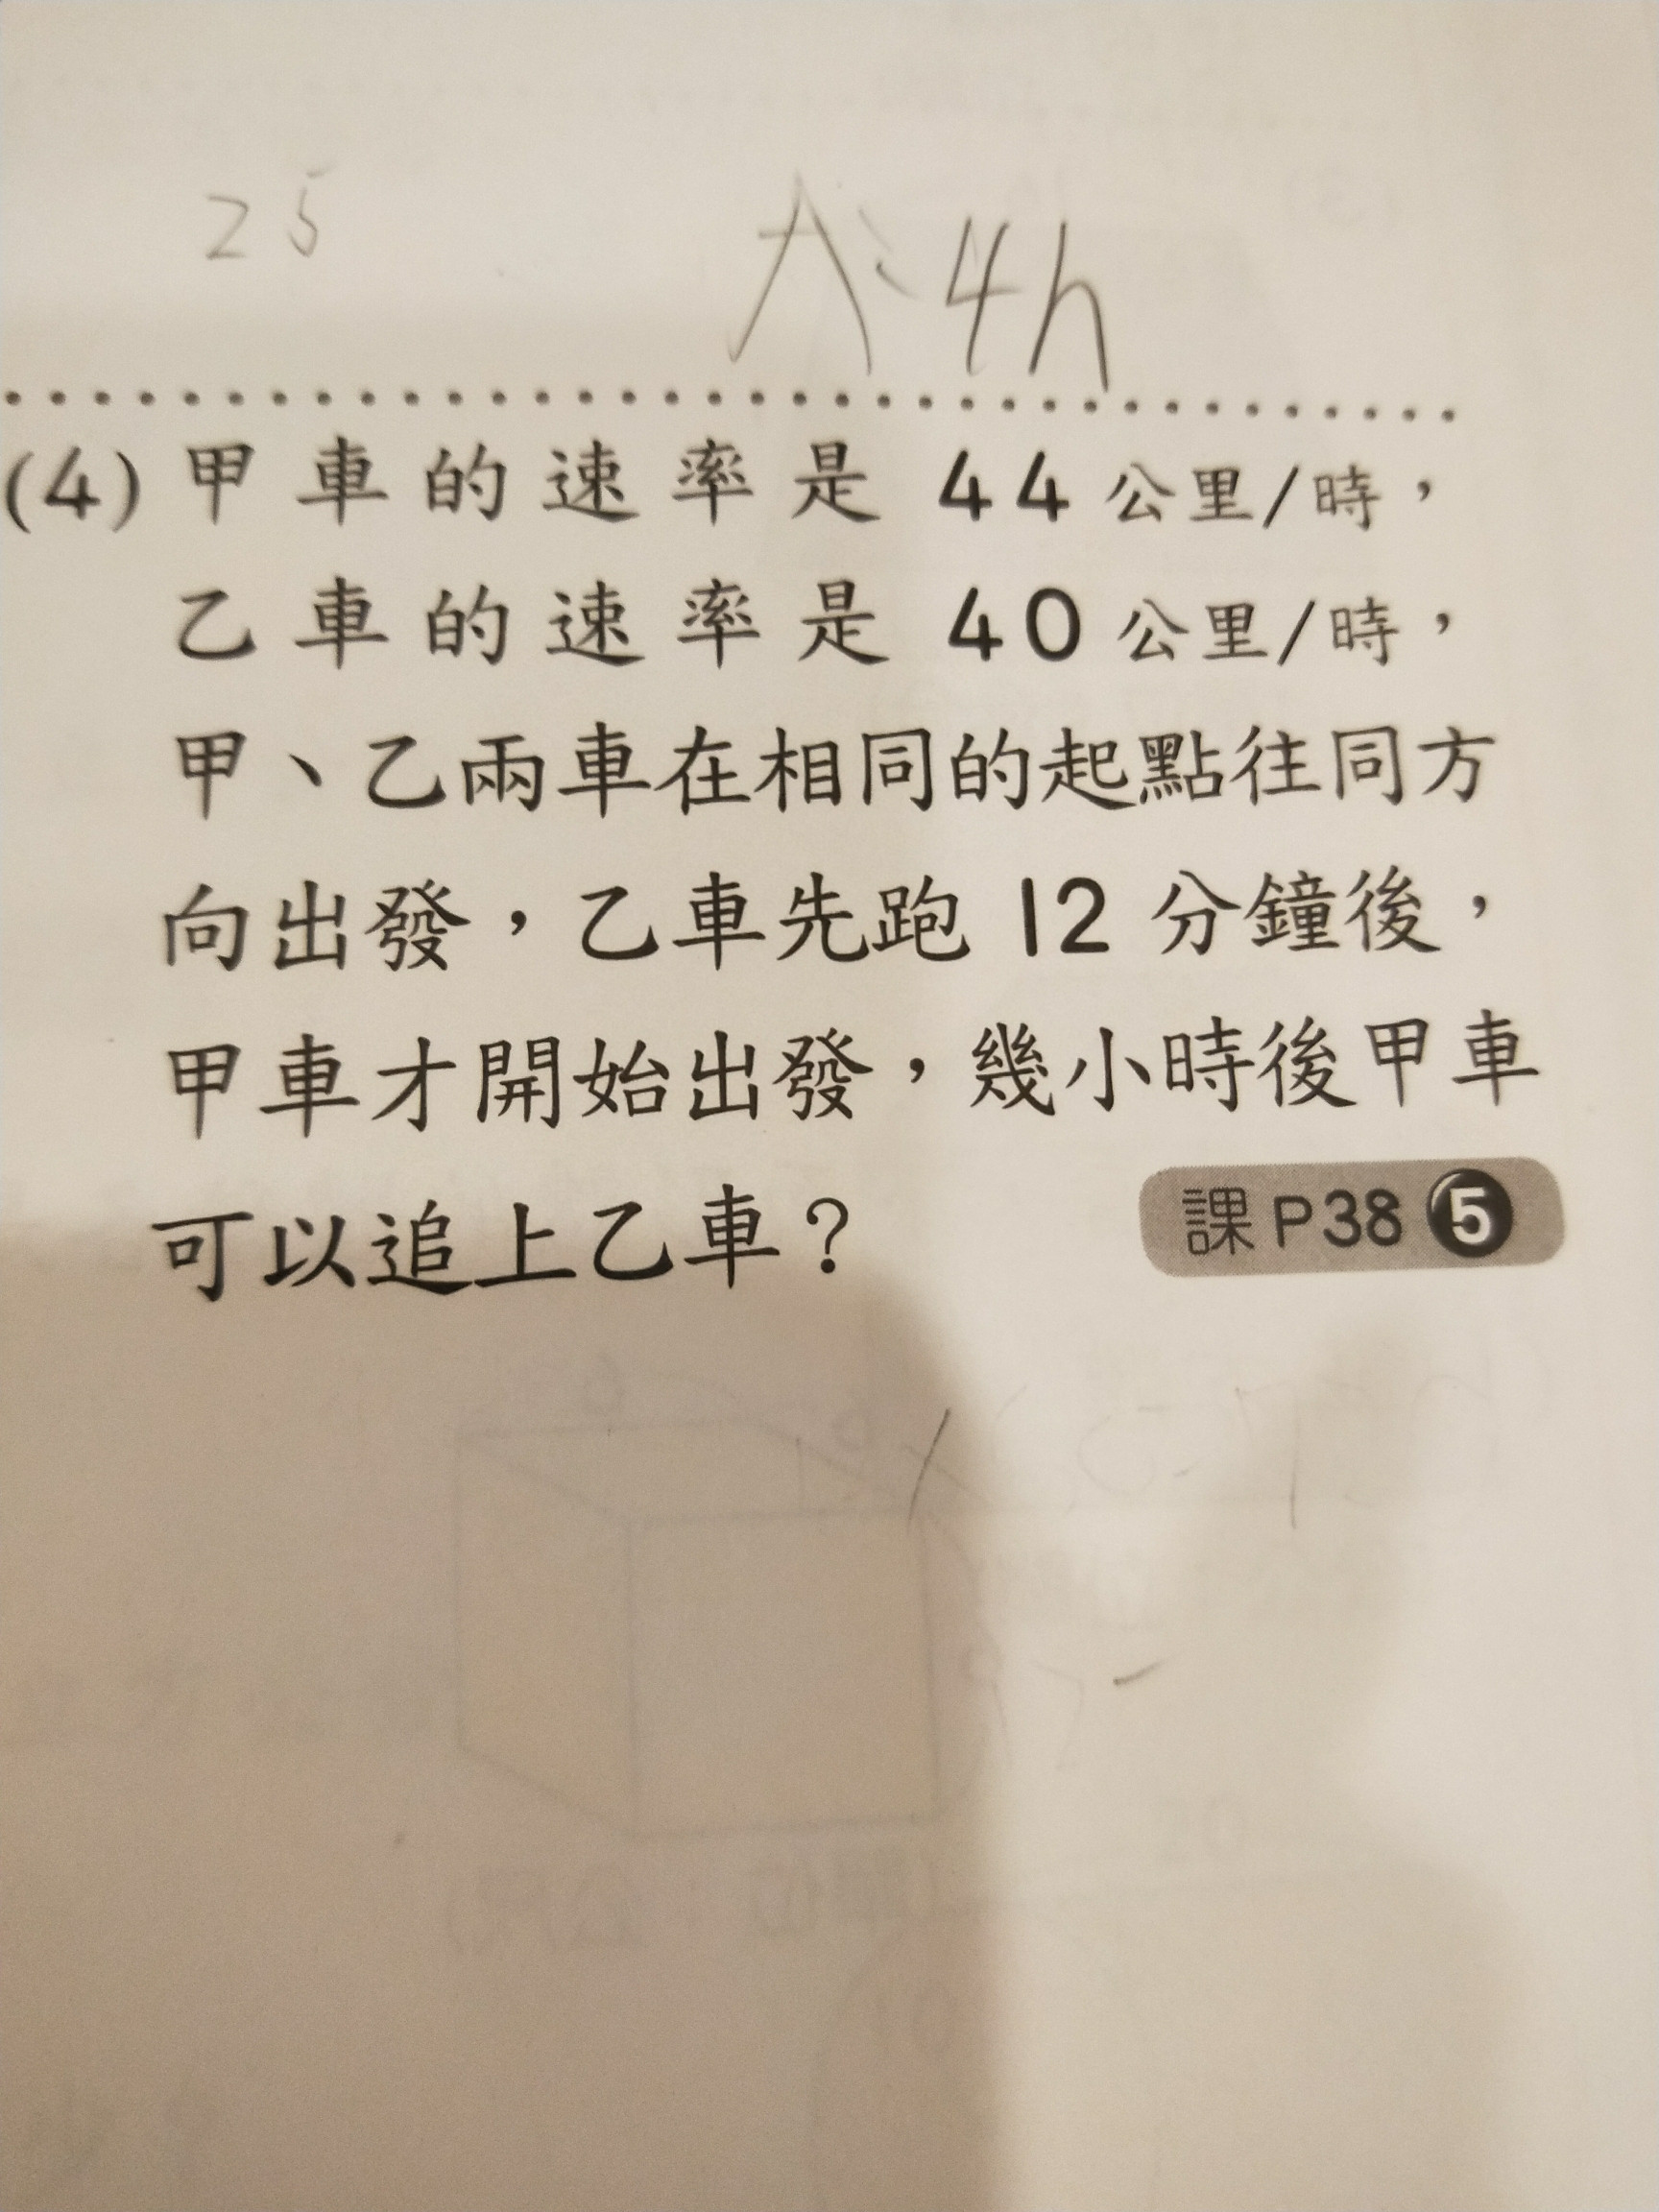 25
A:4h
(4)甲車的速率是 44 公里/時，
乙車的速率是 40 公里/時，
甲、乙兩車在相同的起點往同方
向出發，乙車先跑 12 分鐘後，
甲車才開始出發，幾小時後甲車
可以追上乙車？ 課P38 5